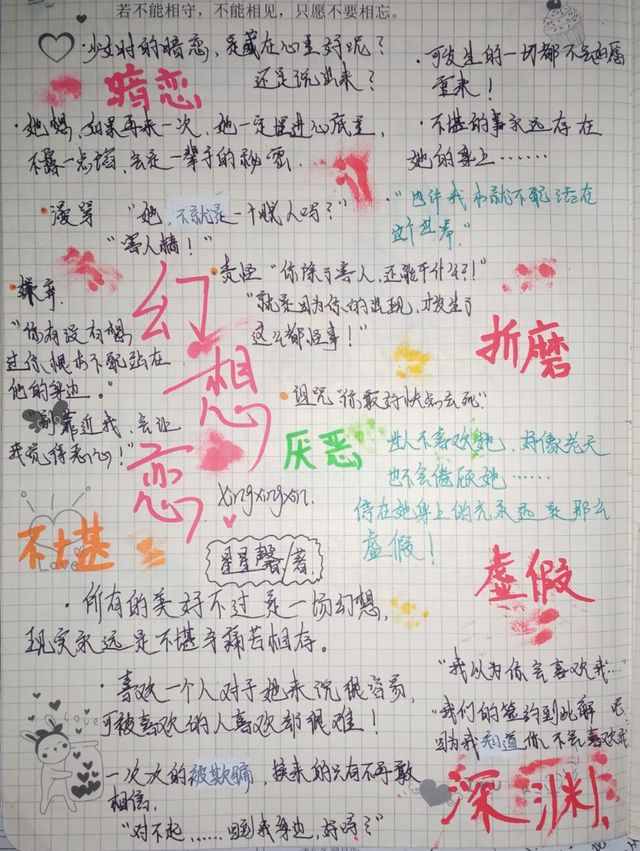 若不能相守，不能相见，只愿不要相忘。
·少女时的暗恋，是藏在心里好呢？
还是说出来？
暗恋
·她想，如果再来一次，她一定埋进心底里，
不露一点馅，会是一辈子的秘密。
·可发生的一切都不会如愿
重来！
·不堪的事永远存在
她的身上……
“也许我本就不配活在
这世界。”
·漫骂 “她，不就是一个贱人吗？”
“害人精！”
·责怪“你除了害人，还能干什么！”
“就是因为你的出现，才发生了
这么都怪事！”
·嫌弃
“你有没有想
过你根本不配站在
他的身边。”
“别靠近我，会让
我觉得恶心！”
幻想恋
折磨
·诅咒“你最好快点去死”
厌恶
世人不喜欢她，好像老天
也不会偏顾她……
停在她身上的光永远是那么
虚假！
xingxingxin.
不堪
星星馨/著
虚假
·所有的美好不过是一场幻想，
现实永远是不堪辛痛苦相存。
·喜欢一个人对于她来说很容易，
可被喜欢的人喜欢却很难！
“我以为你会喜欢我…”
“我们的签约到此解吧
因为我知道他不会喜欢我
love
一次次的被欺骗，换来的只有不再敢
相信，
“对不起，……回到我身边，好吗？”
深渊